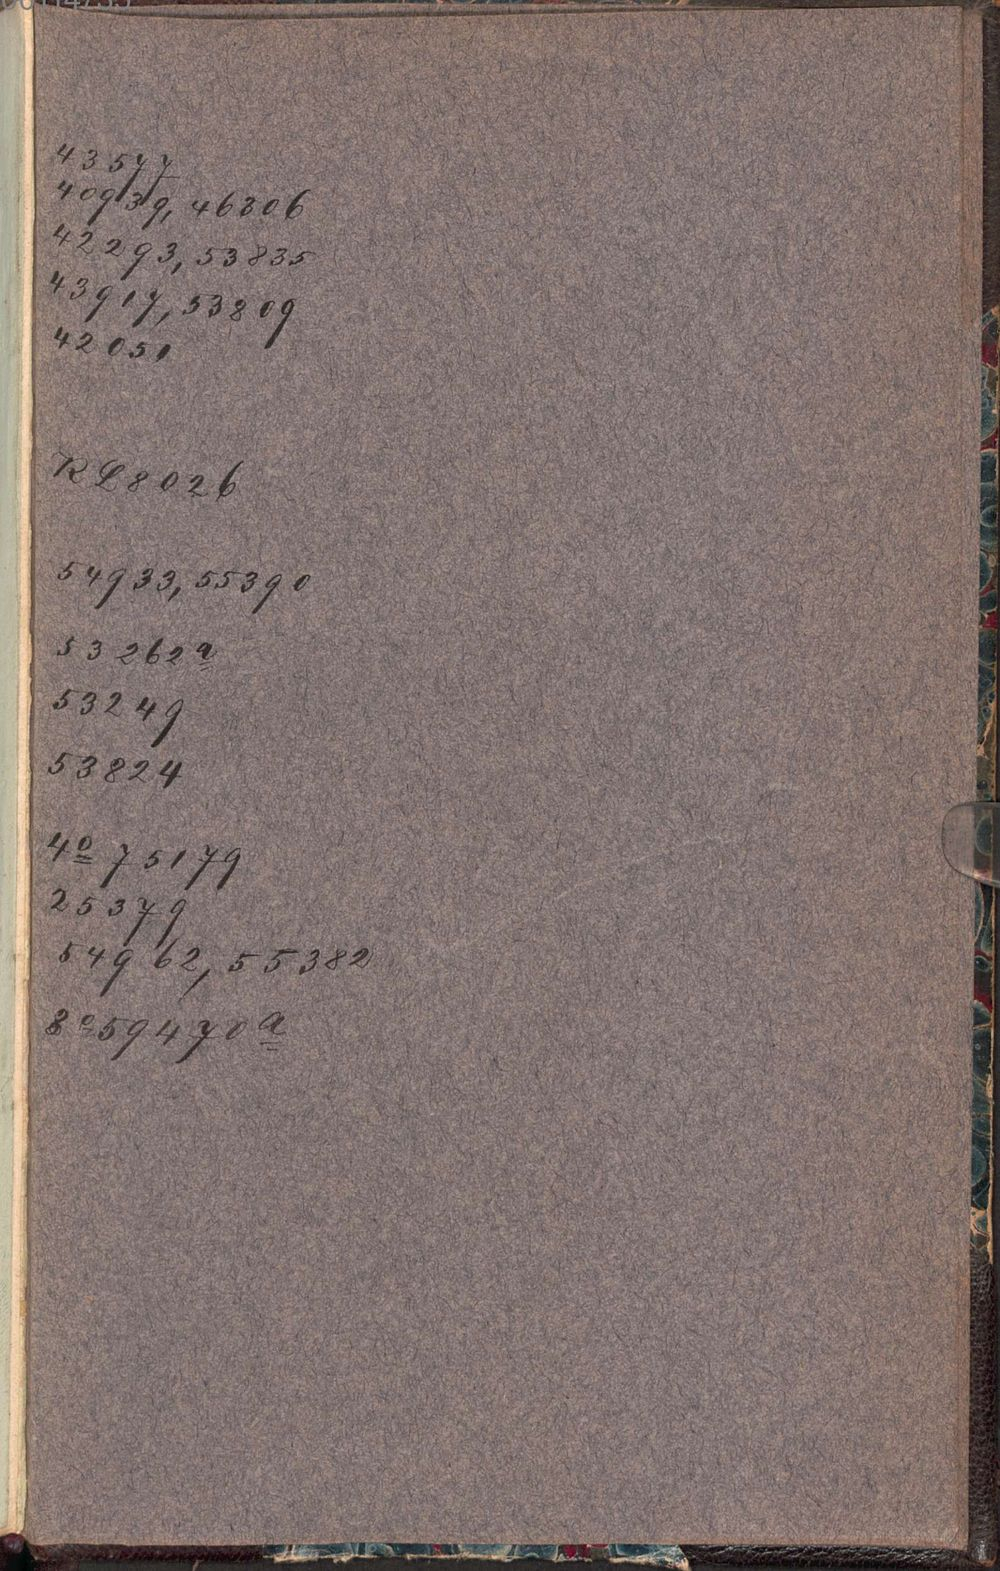 43577
40939, 46306
42293, 53835
43917, 53809
42051
KL8026
54933, 55390
53262a
53249
53824
4o 75179
25379
54962, 55382
8o59470a